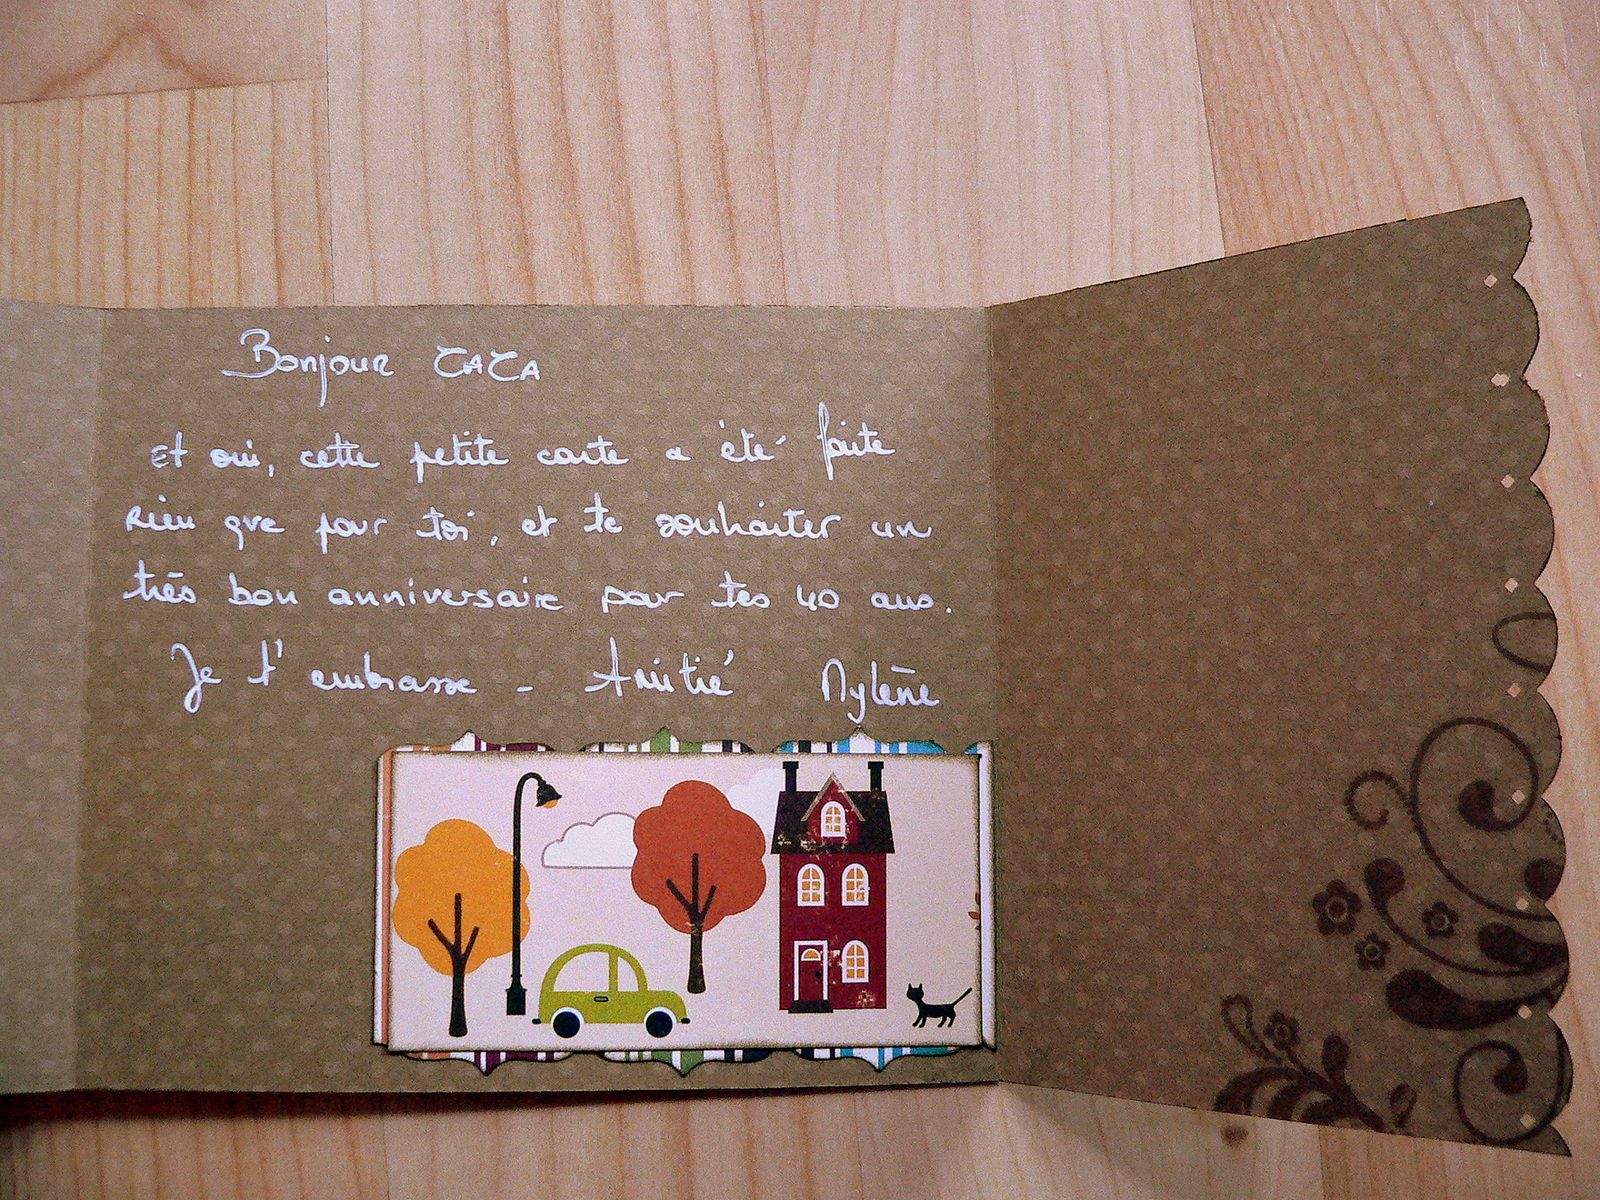 Bonjour TATA
Et oui, cette petite carte a été faite
rien que pour toi, et te souhaiter un
très bon anniversaire pour tes 40 ans.
Je t'embrasse - Amitié Mylène